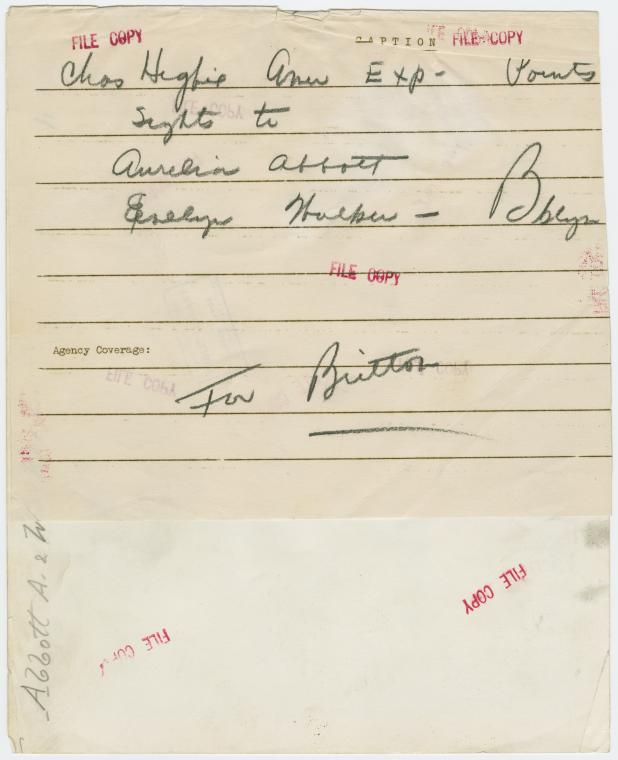 FILE COPY
CAPTION FILE COPY
Chas Higbie Amer Exp - Points
sights to
Aurelia Abbott
Evelyn Walker - Bklyn
FILE COPY
Agency Coverage:
FILE COPY
For Britton
FILE COPY
FILE COPY
Abbott A. & W